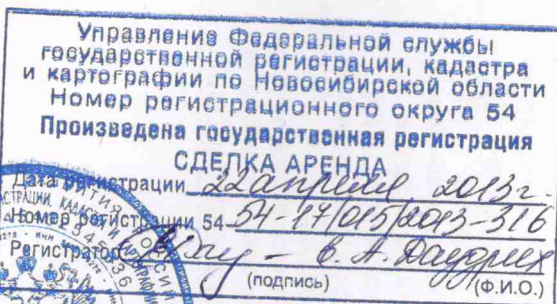 Управление Федеральной службы
государственной регистрации, кадастра
и картографии по Новосибирской области
Номер регистрационного округа 54
Произведена государственная регистрация
СДЕЛКА АРЕНДА
Дата регистрации 22 апреля 2013г.
Номер регистрации 54-54-17/015/2013-316
Регистратор В. А.
(подпись) (Ф.И.О.)